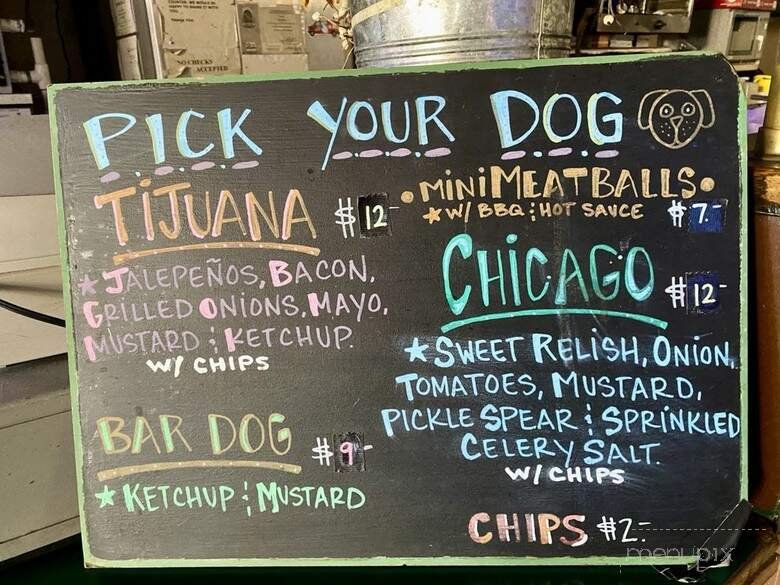 COUNTER. WE WOULD BE
HAPPY TO SHARE IT WITH
YOU.
NO CHECKS
ACCEPTED
PICK YOUR DOG
TIJUANA $12-
★ JALEPEÑOS, BACON,
GRILLED ONIONS, MAYO,
MUSTARD & KETCHUP.
W/ CHIPS
BAR DOG $9-
★ KETCHUP & MUSTARD
• MINI MEATBALLS •
★ W/ BBQ & HOT SAUCE $7-
CHICAGO $12-
★ SWEET RELISH, ONION,
TOMATOES, MUSTARD,
PICKLE SPEAR & SPRINKLED
CELERY SALT.
W/ CHIPS
CHIPS #2.-
menupix